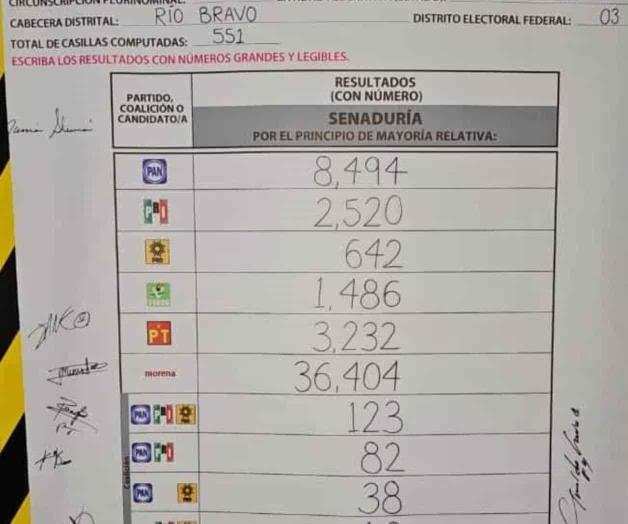 CIRCUNSCRIPCIÓN PLURINOMINAL:
CABECERA DISTRITAL: RÍO BRAVO DISTRITO ELECTORAL FEDERAL: 03
TOTAL DE CASILLAS COMPUTADAS: 551
ESCRIBA LOS RESULTADOS CON NÚMEROS GRANDES Y LEGIBLES.
PARTIDO, COALICIÓN O CANDIDATO/A
RESULTADOS
(CON NÚMERO)
SENADURÍA
POR EL PRINCIPIO DE MAYORÍA RELATIVA:
PAN 8,494
PRI 2,520
PRD 642
VERDE 1,486
PT 3,232
morena 36,404
PAN PRI PRD 123
PAN PRI 82
PAN PRD 38